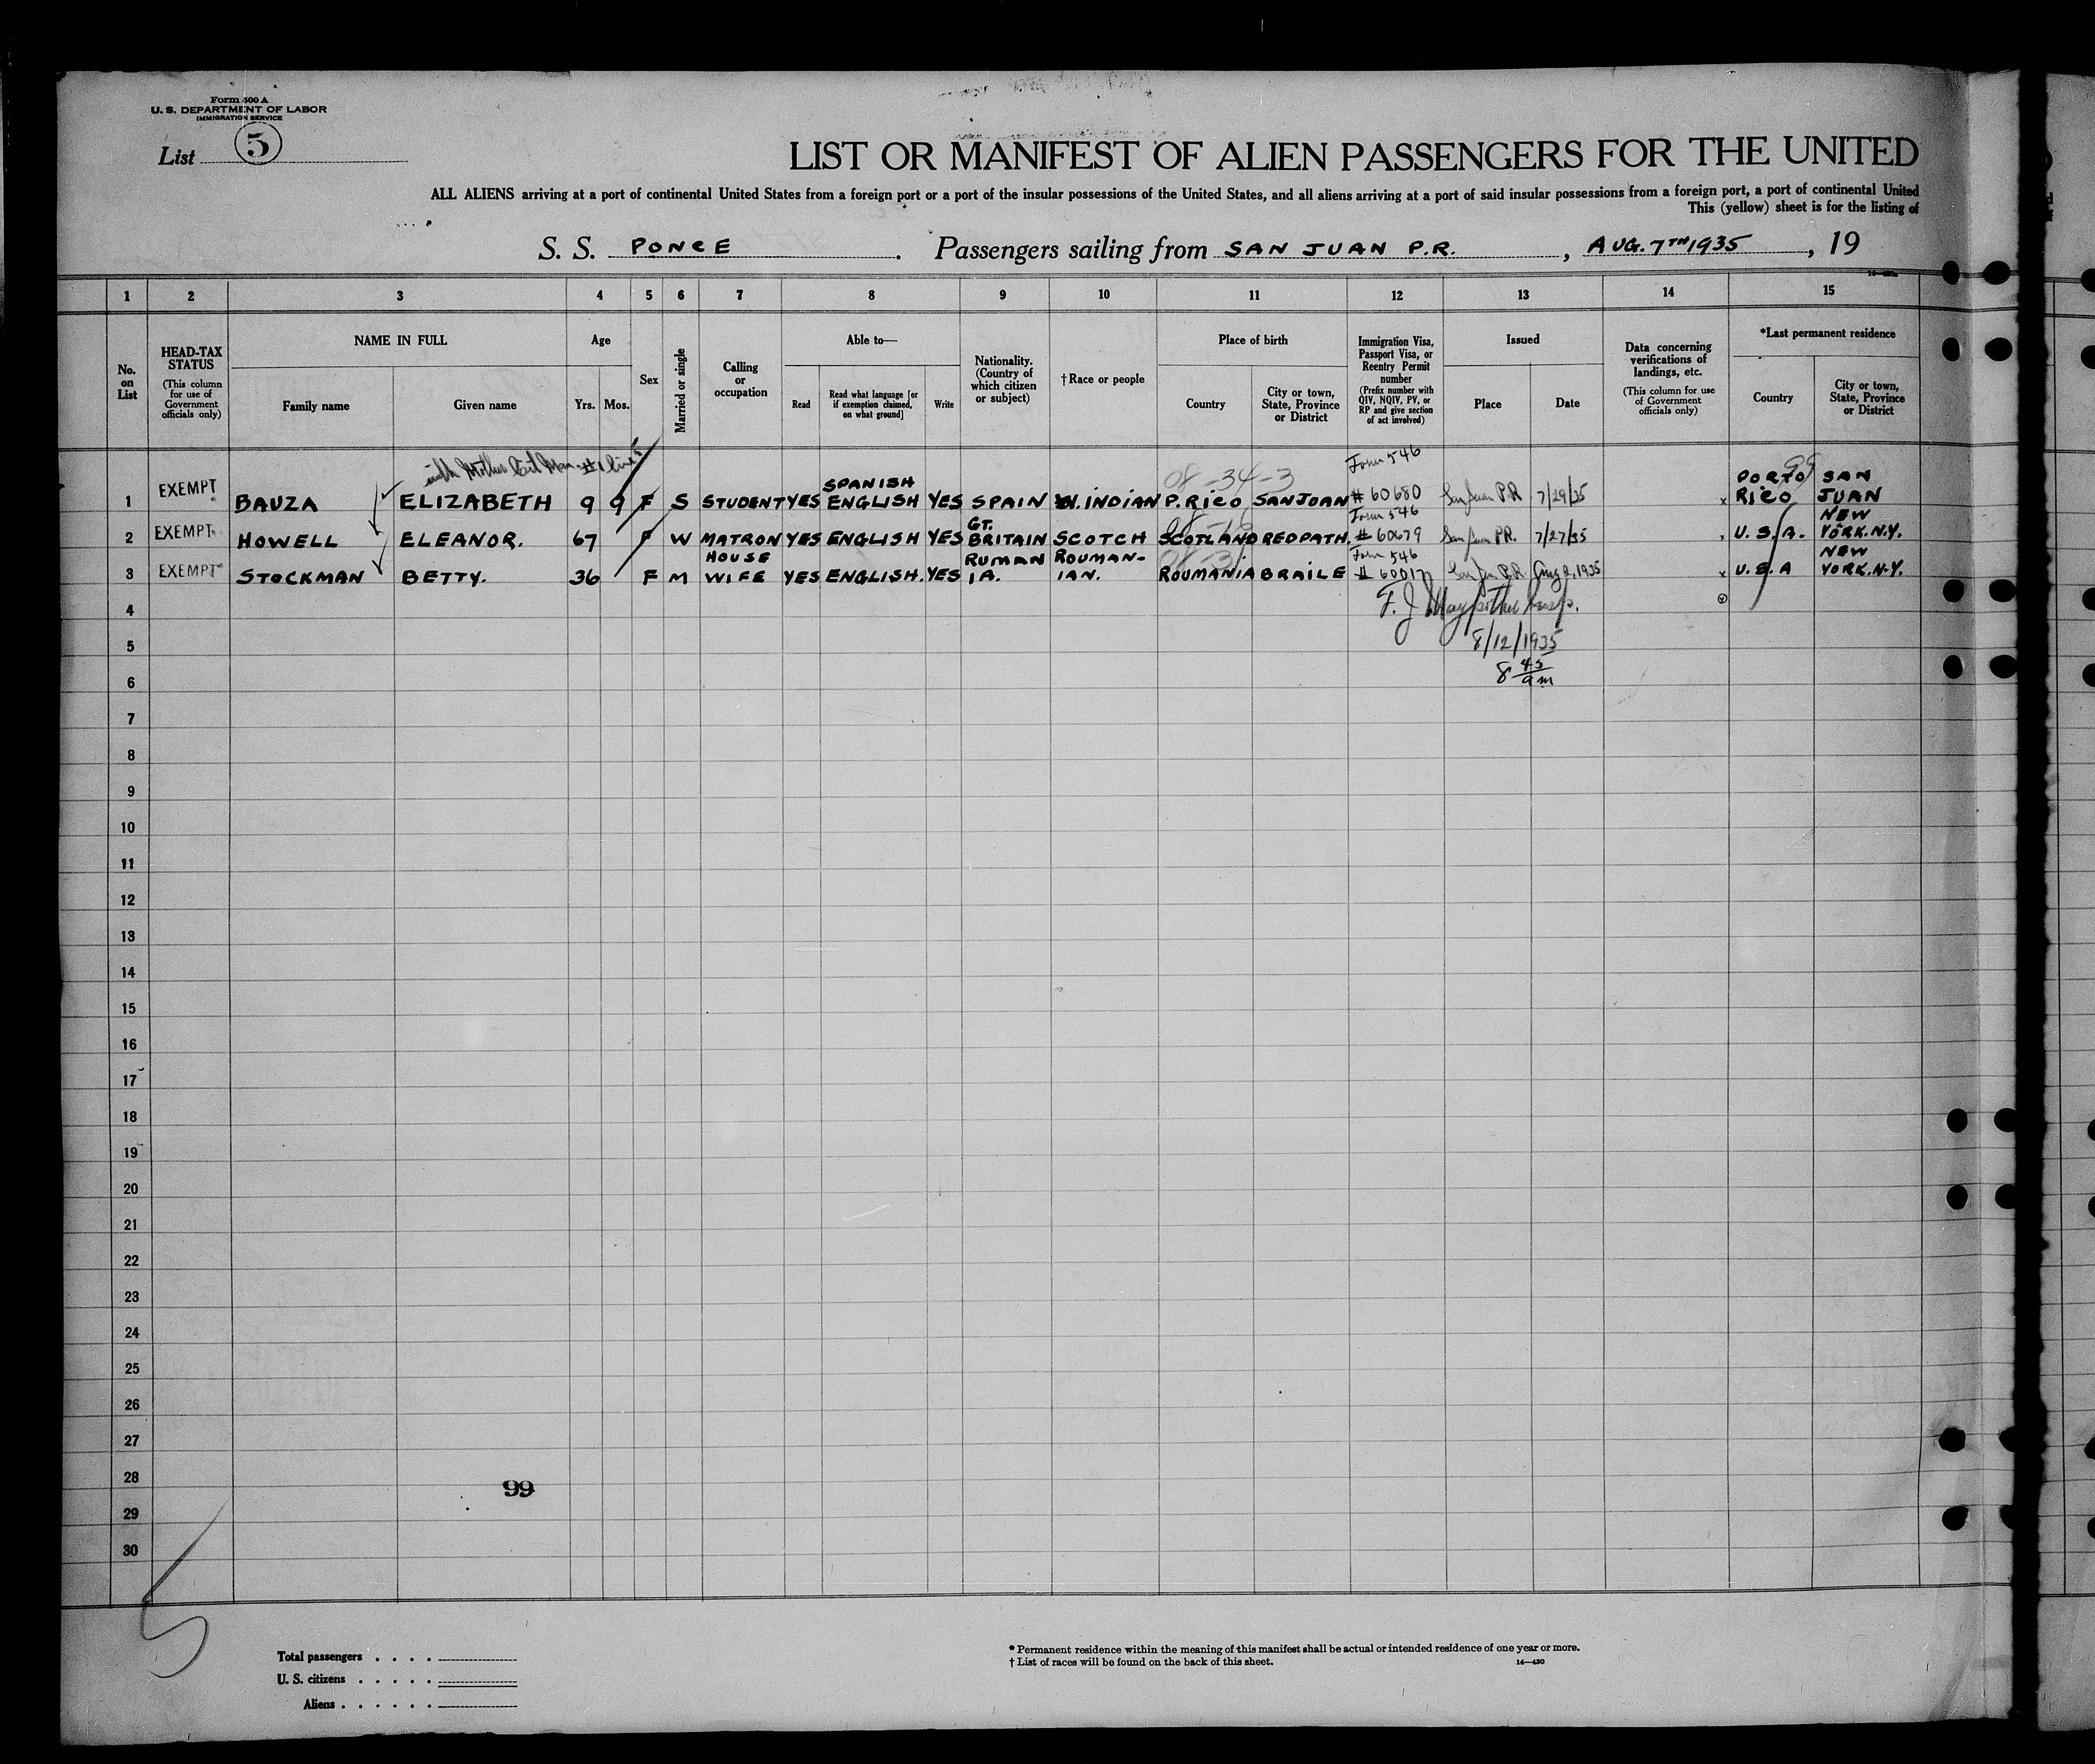 Form 500 A
U. S. DEPARTMENT OF LABOR
IMMIGRATION SERVICE
List 5
LIST OR MANIFEST OF ALIEN PASSENGERS FOR THE UNITED
ALL ALIENS arriving at a port of continental United States from a foreign port or a port of the insular possessions of the United States, and all aliens arriving at a port of said insular possessions from a foreign port, a port of continental United
This (yellow) sheet is for the listing of
S. S. PONCE . Passengers sailing from SAN JUAN P.R. , AUG. 7TH 1935 , 19
1 2 3 4 5 6 7 8 9 10 11 12 13 14 15
No. on List
HEAD-TAX STATUS
(This column for use of Government officials only)
NAME IN FULL
Family name
Given name
Age
Yrs.
Mos.
Sex
Married or single
Calling or occupation
Able to—
Read
Read what language [or if exemption claimed, on what ground]
Write
Nationality. (Country of which citizen or subject)
† Race or people
Place of birth
Country
City or town, State, Province or District
Immigration Visa, Passport Visa, or Reentry Permit number
(Prefix number with QIV, NQIV, PV, or RP and give section of act involved)
Issued
Place
Date
Data concerning verifications of landings, etc.
(This column for use of Government officials only)
*Last permanent residence
Country
City or town, State, Province or District
with Mother
08-34-3
Form 546
99
1 EXEMPT BAUZA ELIZABETH 9 9 F S STUDENT YES SPANISH ENGLISH YES SPAIN W. INDIAN P. RICO SAN JUAN # 60680 San Juan P.R 7/29/35 x PORTO RICO SAN JUAN
2 EXEMPT HOWELL ELEANOR. 67 F W MATRON YES ENGLISH YES GT. BRITAIN SCOTCH SCOTLAND REDPATH. Form 546 # 60679 San Juan P.R. 7/27/35 x U. S. A. NEW YORK. N.Y.
3 EXEMPT STOCKMAN BETTY. 36 F M HOUSE WIFE YES ENGLISH. YES RUMANIA. ROUMAN-IAN. ROUMANIA BRAILE Form 546 San Juan P.R. Aug 2, 1935 x U.S.A NEW YORK. N.Y.
4
F. J.
5
8/12/1935
6
8 45 am
7
8
9
10
11
12
13
14
15
16
17
18
19
20
21
22
23
24
25
26
27
28
99
29
30
5
Total passengers . . . .
U. S. citizens . . . . .
Aliens . . . . . .
* Permanent residence within the meaning of this manifest shall be actual or intended residence of one year or more.
† List of races will be found on the back of this sheet.
14—430